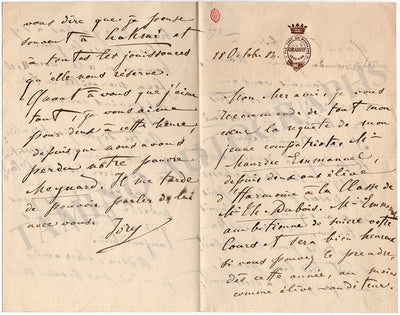 vous dire que je pense
souvent à Lakmé et
à toutes les jouissances
qu'elle nous réserve.
Quant à vous que j'aime
tant, je vous aime
pour deux à cette heure,
depuis que nous avons
perdu notre pauvre
Magnard. Il me tarde
de pouvoir parler de lui
avec vous.
18 Octobre
Mon cher ami, je vous
recommande de tout mon
cœur la requête de mon
jeune compatriote, Mr
Maurice Emmanuel,
depuis deux ans élève
d'harmonie à la Classe de
Mr Th. Dubois. M. Emm.
ambitionne de suivre votre
Cours et sera bien heureux
si vous pouvez le prendre,
dès cette année, au moins
comme élève auditeur.
TAMINO AUTOGRAPHS